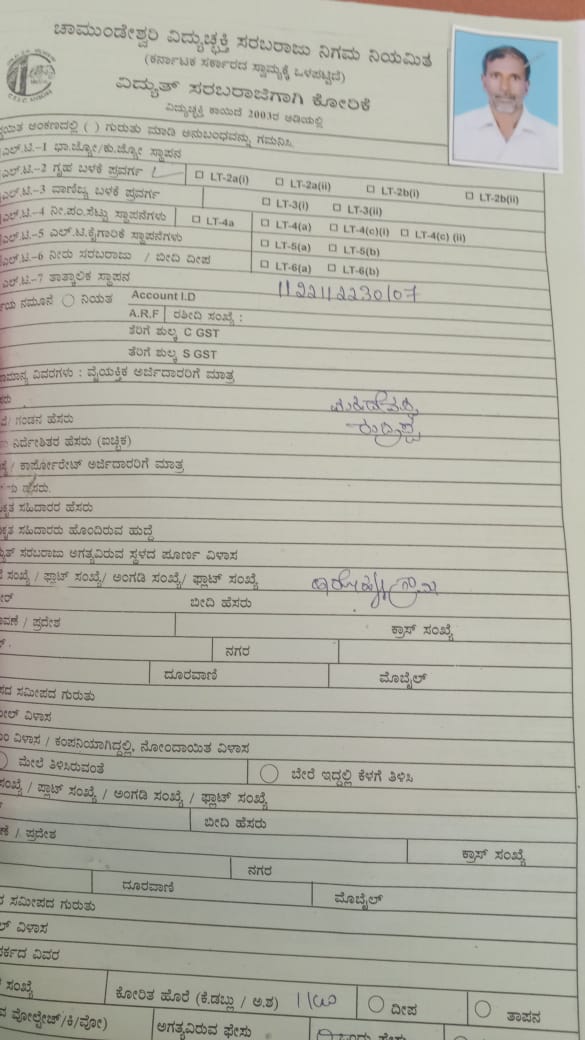 ಚಾಮುಂಡೇಶ್ವರಿ ವಿದ್ಯುಚ್ಛಕ್ತಿ ಸರಬರಾಜು ನಿಗಮ ನಿಯಮಿತ
(ಕರ್ನಾಟಕ ಸರ್ಕಾರದ ಸ್ವಾಮ್ಯಕ್ಕೆ ಒಳಪಟ್ಟಿದೆ)
ವಿದ್ಯುತ್ ಸರಬರಾಜಿಗಾಗಿ ಕೋರಿಕೆ
ವಿದ್ಯುಚ್ಛಕ್ತಿ ಕಾಯಿದೆ 2003ರ ಅಡಿಯಲ್ಲಿ
ಅಂಕಣದಲ್ಲಿ ( ) ಗುರುತು ಮಾಡಿ ಅನುಬಂಧವನ್ನು ಗಮನಿಸಿ
ಎಲ್.ಟಿ.-1 ಭಾ.ಜ್ಯೋ/ಕು.ಜ್ಯೋ ಸ್ಥಾಪನ
ಎಲ್.ಟಿ.-2 ಗೃಹ ಬಳಕೆ ಪ್ರವರ್ಗ □ LT-2a(i) □ LT-2a(ii) □ LT-2b(i) □ LT-2b(ii)
ಎಲ್.ಟಿ.-3 ವಾಣಿಜ್ಯ ಬಳಕೆ ಪ್ರವರ್ಗ □ LT-3(i) □ LT-3(ii)
ಎಲ್.ಟಿ.-4 ನೀ.ಪಂ.ಸೆಟ್ಟು ಸ್ಥಾಪನೆಗಳು □ LT-4a □ LT-4(a) □ LT-4(c)(i) □ LT-4(c) (ii)
ಎಲ್.ಟಿ.-5 ಎಲ್.ಟಿ.ಕೈಗಾರಿಕೆ ಸ್ಥಾಪನೆಗಳು □ LT-5(a) □ LT-5(b)
ಎಲ್.ಟಿ.-6 ನೀರು ಸರಬರಾಜು / ಬೀದಿ ದೀಪ □ LT-6(a) □ LT-6(b)
ಎಲ್.ಟಿ.-7 ತಾತ್ಕಾಲಿಕ ಸ್ಥಾಪನ
ನಮೂನೆ ○ ನಿಯತ Account I.D 1122112230107
A.R.F ರಶೀದಿ ಸಂಖ್ಯೆ :
ತೆರಿಗೆ ಶುಲ್ಕ C GST
ತೆರಿಗೆ ಶುಲ್ಕ S GST
ವಿವರಗಳು : ವೈಯಕ್ತಿಕ ಅರ್ಜಿದಾರರಿಗೆ ಮಾತ್ರ
ಗಂಡನ ಹೆಸರು
ನಿರ್ದೇಶಿತರ ಹೆಸರು (ಐಚ್ಛಿಕ)
/ ಕಾರ್ಪೋರೇಟ್ ಅರ್ಜಿದಾರರಿಗೆ ಮಾತ್ರ
ಸಹಿದಾರರ ಹೆಸರು
ಸಹಿದಾರರು ಹೊಂದಿರುವ ಹುದ್ದೆ
ಸರಬರಾಜು ಅಗತ್ಯವಿರುವ ಸ್ಥಳದ ಪೂರ್ಣ ವಿಳಾಸ
ಸಂಖ್ಯೆ / ಫ್ಲಾಟ್ ಸಂಖ್ಯೆ/ ಅಂಗಡಿ ಸಂಖ್ಯೆ/ ಫ್ಲಾಟ್ ಸಂಖ್ಯೆ
ಬೀದಿ ಹೆಸರು
/ ಪ್ರದೇಶ ಕ್ರಾಸ್ ಸಂಖ್ಯೆ
ನಗರ
ದೂರವಾಣಿ ಮೊಬೈಲ್
ಸಮೀಪದ ಗುರುತು
ವಿಳಾಸ
ವಿಳಾಸ / ಕಂಪನಿಯಾಗಿದ್ದಲ್ಲಿ, ನೋಂದಾಯಿತ ವಿಳಾಸ
ಮೇಲೆ ತಿಳಿಸಿರುವಂತೆ ○ ಬೇರೆ ಇದ್ದಲ್ಲಿ ಕೆಳಗೆ ತಿಳಿಸಿ
ಸಂಖ್ಯೆ / ಪ್ಲಾಟ್ ಸಂಖ್ಯೆ / ಅಂಗಡಿ ಸಂಖ್ಯೆ / ಫ್ಲಾಟ್ ಸಂಖ್ಯೆ
ಬೀದಿ ಹೆಸರು
/ ಪ್ರದೇಶ ಕ್ರಾಸ್ ಸಂಖ್ಯೆ
ನಗರ
ದೂರವಾಣಿ ಮೊಬೈಲ್
ಸಮೀಪದ ಗುರುತು
ವಿಳಾಸ
ವಿವರ
ಸಂಖ್ಯೆ ಕೋರಿತ ಹೊರೆ (ಕೆ.ಡಬ್ಲು / ಅ.ಶ) ○ ದೀಪ ○ ತಾಪನ
ವೋಲ್ಟೇಜ್/ಕಿ/ವೋ) ಅಗತ್ಯವಿರುವ ಫೇಸು